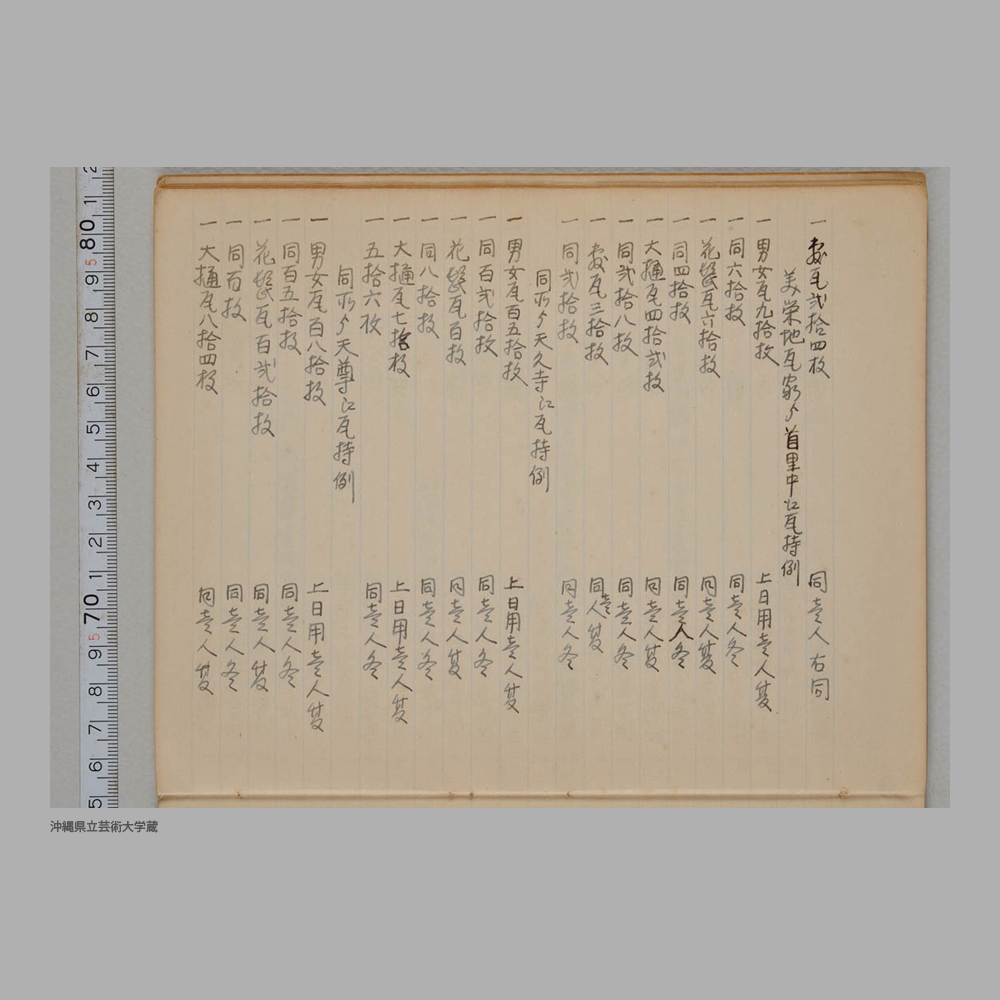 一 安瓦弐拾四枚 同壱人右同
美栄地瓦家ゟ首里中江瓦持例
一 男女瓦九拾枚 上日用壱人夏
一 同六拾枚 同壱人冬
一 花髭瓦六拾枚 同壱人夏
一 同四拾枚 同壱人冬
一 大樋瓦四拾弐枚 同壱人夏
一 同弐拾八枚 同壱人冬
一 安瓦三拾枚 同壱人夏
一 同弐拾枚 同壱人冬
同所ゟ天久寺江瓦持例
一 男女瓦百五拾枚 上日用壱人夏
一 同百弐拾枚 同壱人冬
一 花髭瓦百枚 同壱人夏
一 同八拾枚 同壱人冬
一 大樋瓦七拾枚 上日用壱人夏
一 五拾六枚 同壱人冬
同所ゟ天尊江瓦持例
一 男女瓦百八拾枚 上日用壱人夏
一 同百五拾枚 同壱人冬
一 花髭瓦百弐拾枚 同壱人夏
一 同百枚 同壱人冬
一 大樋瓦八拾四枚 同壱人夏
沖縄県立芸術大学蔵